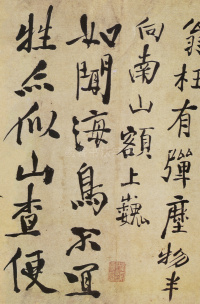 翁枉有彈塵物半
向南山額上巍
如聞海鳥不
牲亦似山查便